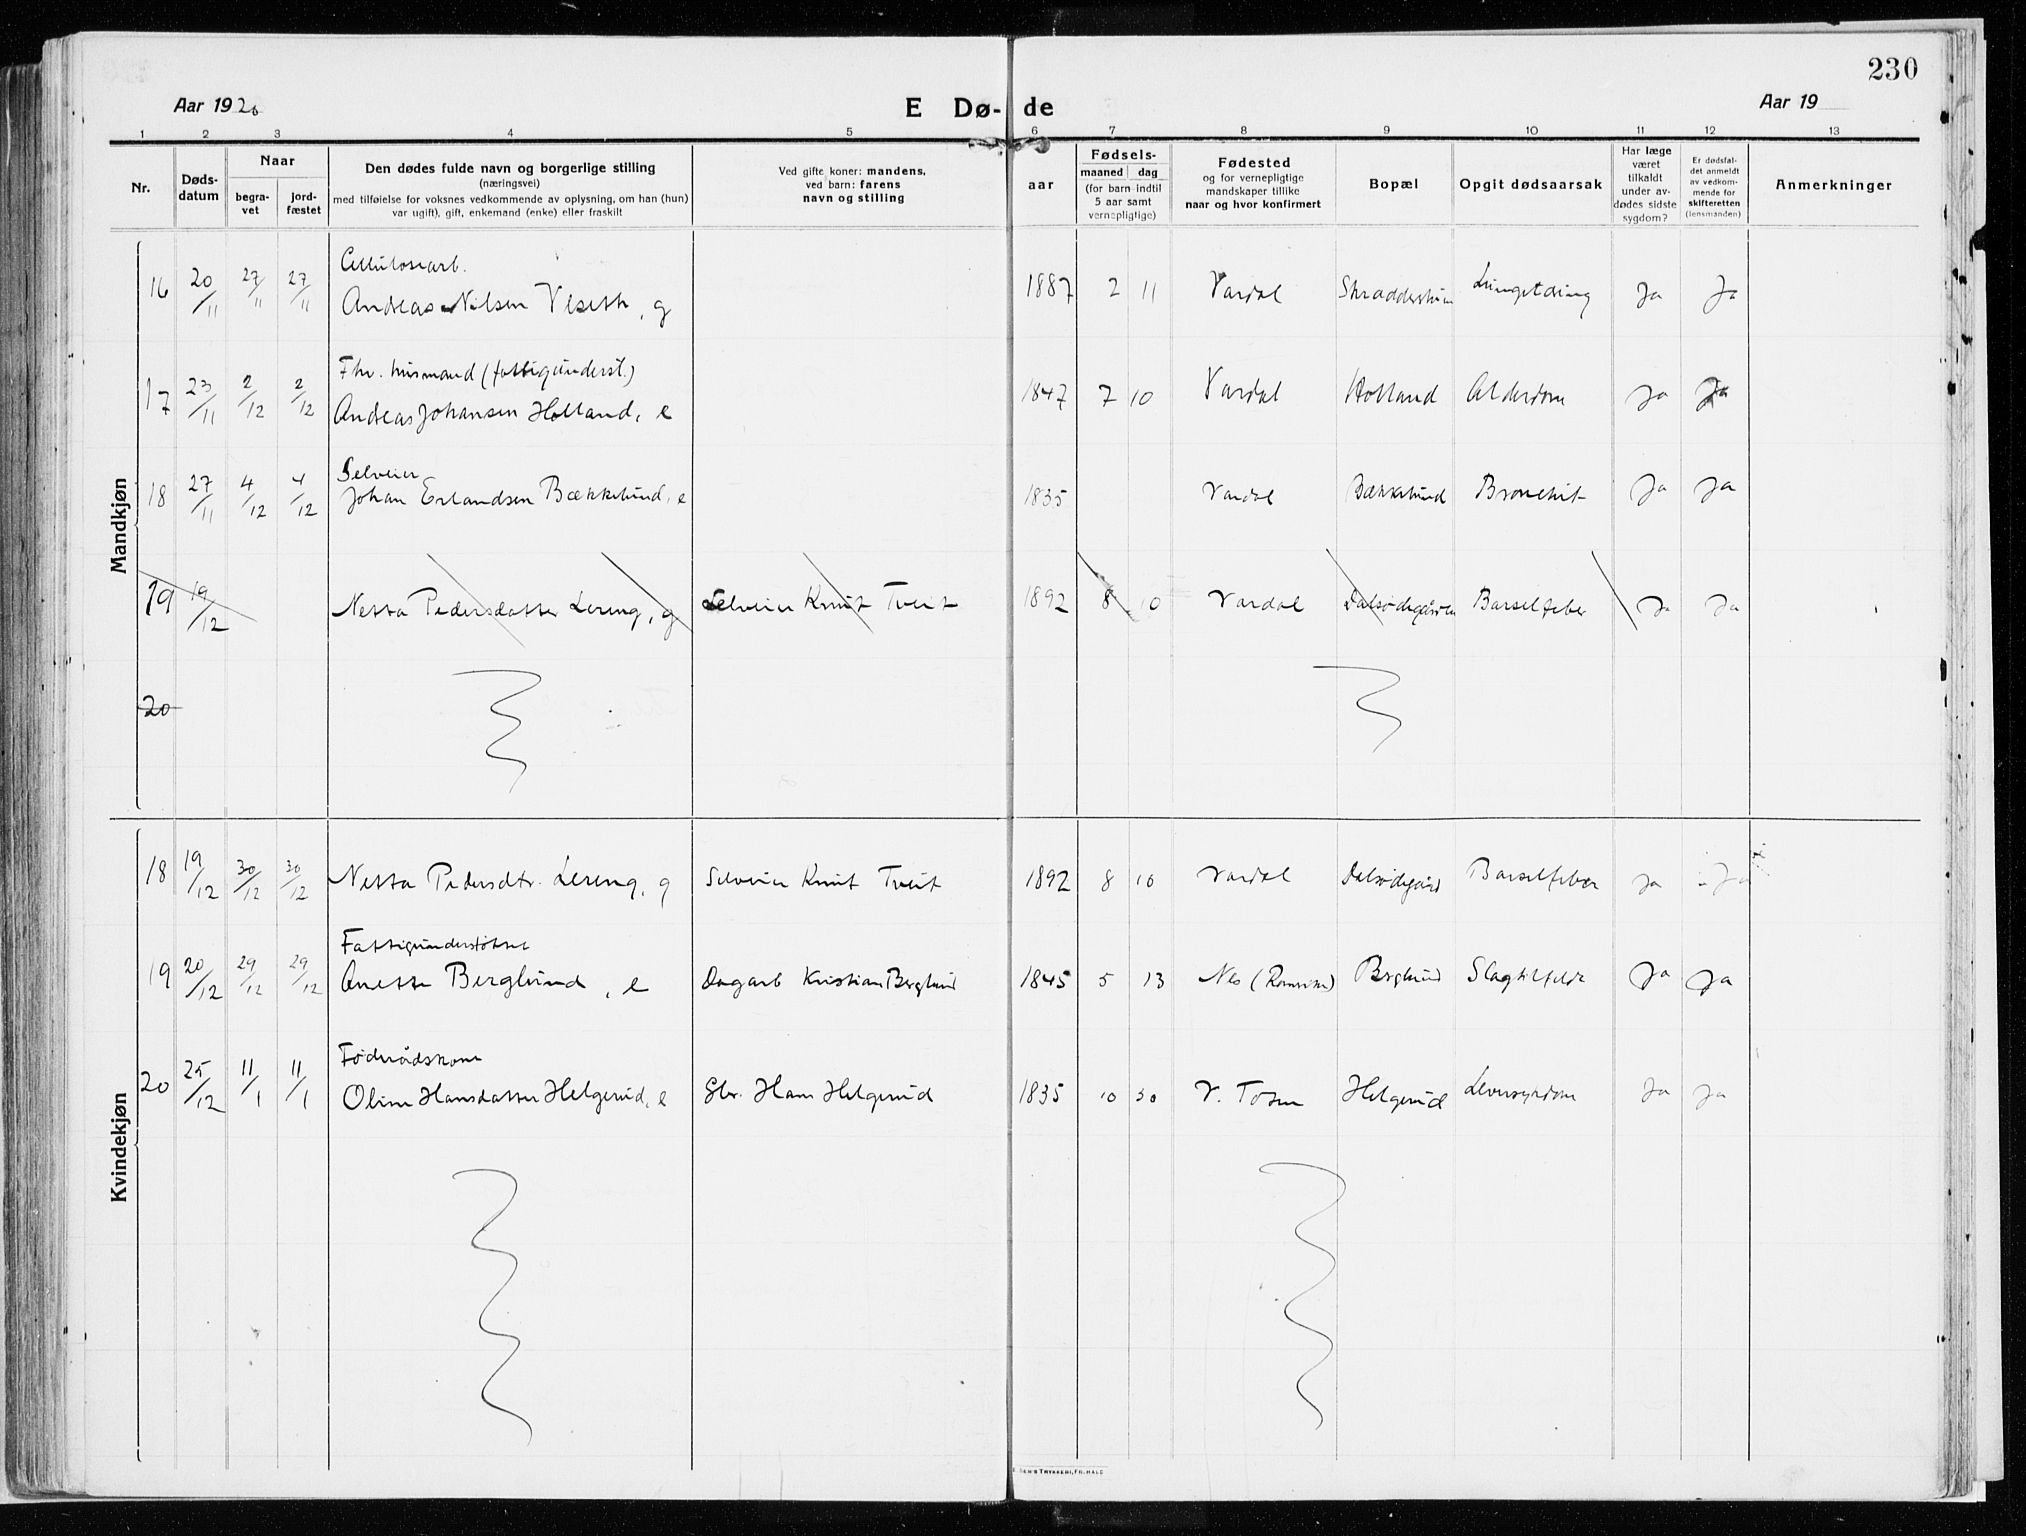 230
Aar 1920
E Dø- de
Aar 19
1 2 3 4 5 6 7 8 9 10 11 12 13
Nr.
Døds-
datum
Naar
begra-
vet
jord-
fæstet
Den dødes fulde navn og borgerlige stilling
(næringsvei)
med tilføielse for voksnes vedkommende av oplysning, om han (hun)
var ugift), gift, enkemand (enke) eller fraskilt
Ved gifte koner: mandens,
ved barn: farens
navn og stilling
aar
Fødsels-
maaned dag
(for barn indtil
5 aar samt
vernepligtige)
Fødested
og for vernepligtige
mandskaper tillike
naar og hvor konfirmert
Bopæl
Opgit dødsaarsak
Har læge
været
tilkaldt
under av-
dødes sidste
sygdom?
Er dødsfal-
det anmeldt
av vedkom-
mende for
skifteretten
(lensmanden)
Anmerkninger
Mandkjøn
Cellulosearb.
16 20/11 27/11 27/11 Andreas Nilsen Vlseth, g 1887 2 11 Vardal Ja Ja
Fhv. husmand (fattigunderst.)
17 23/11 2/12 2/12 Andreas Johansen Holland, e 1847 7 10 Vardal Holland Alderdom Ja Ja
Selveier
18 27/11 4/12 4/12 Johan Erlandsen Bækkelund, e 1835 Vardal Bækkelund Bronchit Ja Ja
19 19/12 Netta Pedersdatter Lereng, g Selveier Knut Tveit 1892 8 10 Vardal Barselfeber Ja Ja
20
Kvindekjøn
18 19/12 30/12 30/12 Netta Pedersdtr. Lereng, g Selveier Knut Tveit 1892 8 10 Vardal Barselfeber Ja Ja
Fattigunderstøttet
19 20/12 29/12 29/12 Anette Berglund, e Dagarb Kristian Berglund 1845 5 13 Nes (Romerike) Berglund Slagtilfelde Ja Ja
Føderådskone
20 25/12 11/1 11/1 Oline Hansdatter Helgerud, e Gbr. Hans Helgerud 1835 10 30 V. Toten Helgerud Leversygdom Ja Ja